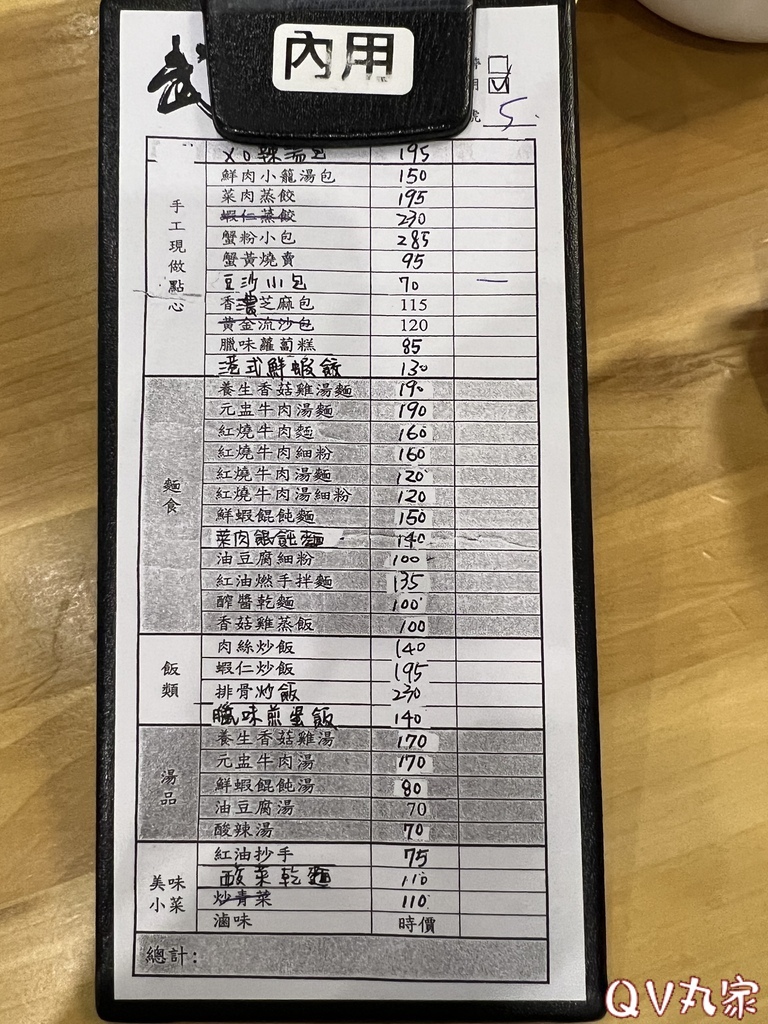 內用
武
5.
XO辣湯包 195
手工現做點心
鮮肉小籠湯包 150
菜肉蒸餃 195
蝦仁蒸餃 230
蟹粉小包 285
蟹黃燒賣 95
豆沙小包 70 一
香濃芝麻包 115
黃金流沙包 120
臘味蘿蔔糕 85
港式鮮蝦餃 130
麵食
養生香菇雞湯麵 190
元盅牛肉湯麵 190
紅燒牛肉麵 160
紅燒牛肉細粉 160
紅燒牛肉湯麵 120
紅燒牛肉湯細粉 120
鮮蝦餛飩麵 150
菜肉餛飩麵 140
油豆腐細粉 100
紅油燃手拌麵 135
醡醬乾麵 100
香菇雞蒸飯 100
飯類
肉絲炒飯 140
蝦仁炒飯 195
排骨炒飯 230
臘味煎蛋飯 140
湯品
養生香菇雞湯 170
元盅牛肉湯 170
鮮蝦餛飩湯 80
油豆腐湯 70
酸辣湯 70
美味小菜
紅油抄手 75
酸菜乾麵 110
炒青菜 110
滷味 時價
總計:
QV丸家